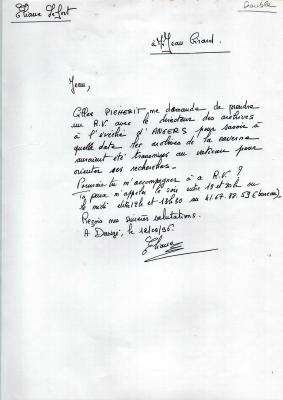 Eliane Lefort
Double
à Mr Jean Girard.
Jean,
Gilles PICHERIT me demande de prendre
un R.V. avec le directeur des archives
à l'évêché d'ANGERS pour savoir à
quelle date les archives de la caverne
auraient été transmises au vatican pour
orienter ses recherches.
Pourrais-tu m'accompagner à ce R.V. ?
Tu peux m'appeler le soir entre 19 et 20h ou
le midi entre 12h et 13h30 au 41.67.88.53 (bureau).
Reçois mes sincères salutations.
A Doué, le 12/09/96.
Eliane